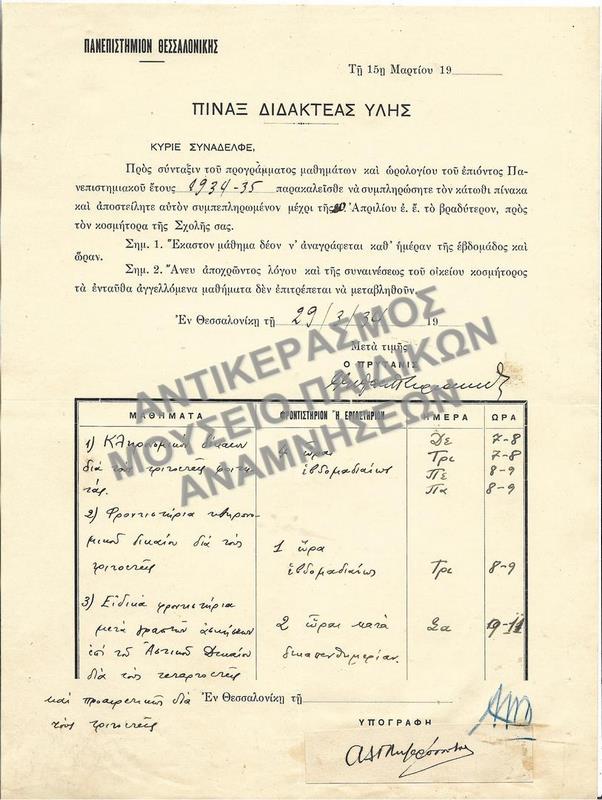 ΠΑΝΕΠΙΣΤΗΜΙΟΝ ΘΕΣΣΑΛΟΝΙΚΗΣ
Τῇ 15ῃ Μαρτίου 19
ΠΙΝΑΞ ΔΙΔΑΚΤΕΑΣ ΥΛΗΣ
ΚΥΡΙΕ ΣΥΝΑΔΕΛΦΕ,
Πρὸς σύνταξιν τοῦ προγράμματος μαθημάτων καὶ ὡρολογίου τοῦ ἐπιόντος Πα-
νεπιστημιακοῦ ἔτους 1934-35 παρακαλεῖσθε νὰ συμπληρώσητε τὸν κάτωθι πίνακα
καὶ ἀποστείλητε αὐτὸν συμπεπληρωμένον μέχρι τῆς 10 Ἀπριλίου ἐ. ἔ. τὸ βραδύτερον, πρὸς
τὸν κοσμήτορα τῆς Σχολῆς σας.
Σημ. 1. Ἕκαστον μάθημα δέον ν' ἀναγράφεται καθ' ἡμέραν τῆς ἑβδομάδος καὶ
ὥραν.
Σημ. 2. Ἄνευ ἀποχρῶντος λόγου καὶ τῆς συναινέσεως τοῦ οἰκείου κοσμήτορος
τὰ ἐνταῦθα ἀγγελλόμενα μαθήματα δὲν ἐπιτρέπεται νὰ μεταβληθοῦν.
Ἐν Θεσσαλονίκῃ τῇ 29/3/34 19
Μετὰ τιμῆς
Ο ΠΡΥΤΑΝΙΣ
ΑΝΤΙΚΕΡΑΣΜΟΣ
ΜΟΥΣΕΙΟ ΠΑΙΔΙΚΩΝ
ΑΝΑΜΝΗΣΕΩΝ
ΜΑΘΗΜΑΤΑ ΦΡΟΝΤΙΣΤΗΡΙΟΝ Ἢ ΕΡΓΑΣΤΗΡΙΟΝ ΗΜΕΡΑ ΩΡΑ
1) Κληρονομικὸν δίκαιον 4 ὧραι Δε 7-8
διὰ τοὺς τριτοετεῖς φοιτη- ἑβδομαδιαίως Τρι 7-8
τάς. Πε 8-9
Πα 8-9
2) Φροντιστήρια κληρονο-
μικοῦ δικαίου διὰ τοὺς 1 ὥρα
τριτοετεῖς ἑβδομαδιαίως Τρι 8-9
3) Εἰδικὰ φροντιστήρια
μετὰ γραπτῶν ἀσκήσεων 2 ὧραι κατὰ Σα 9-11
ἐπὶ τοῦ Ἀστικοῦ Δικαίου δεκαπενθημερίαν.
διὰ τοὺς τεταρτοετεῖς
καὶ προαιρετικῶς διὰ
τοὺς τριτοετεῖς
Ἐν Θεσσαλονίκῃ τῇ
ΥΠΟΓΡΑΦΗ